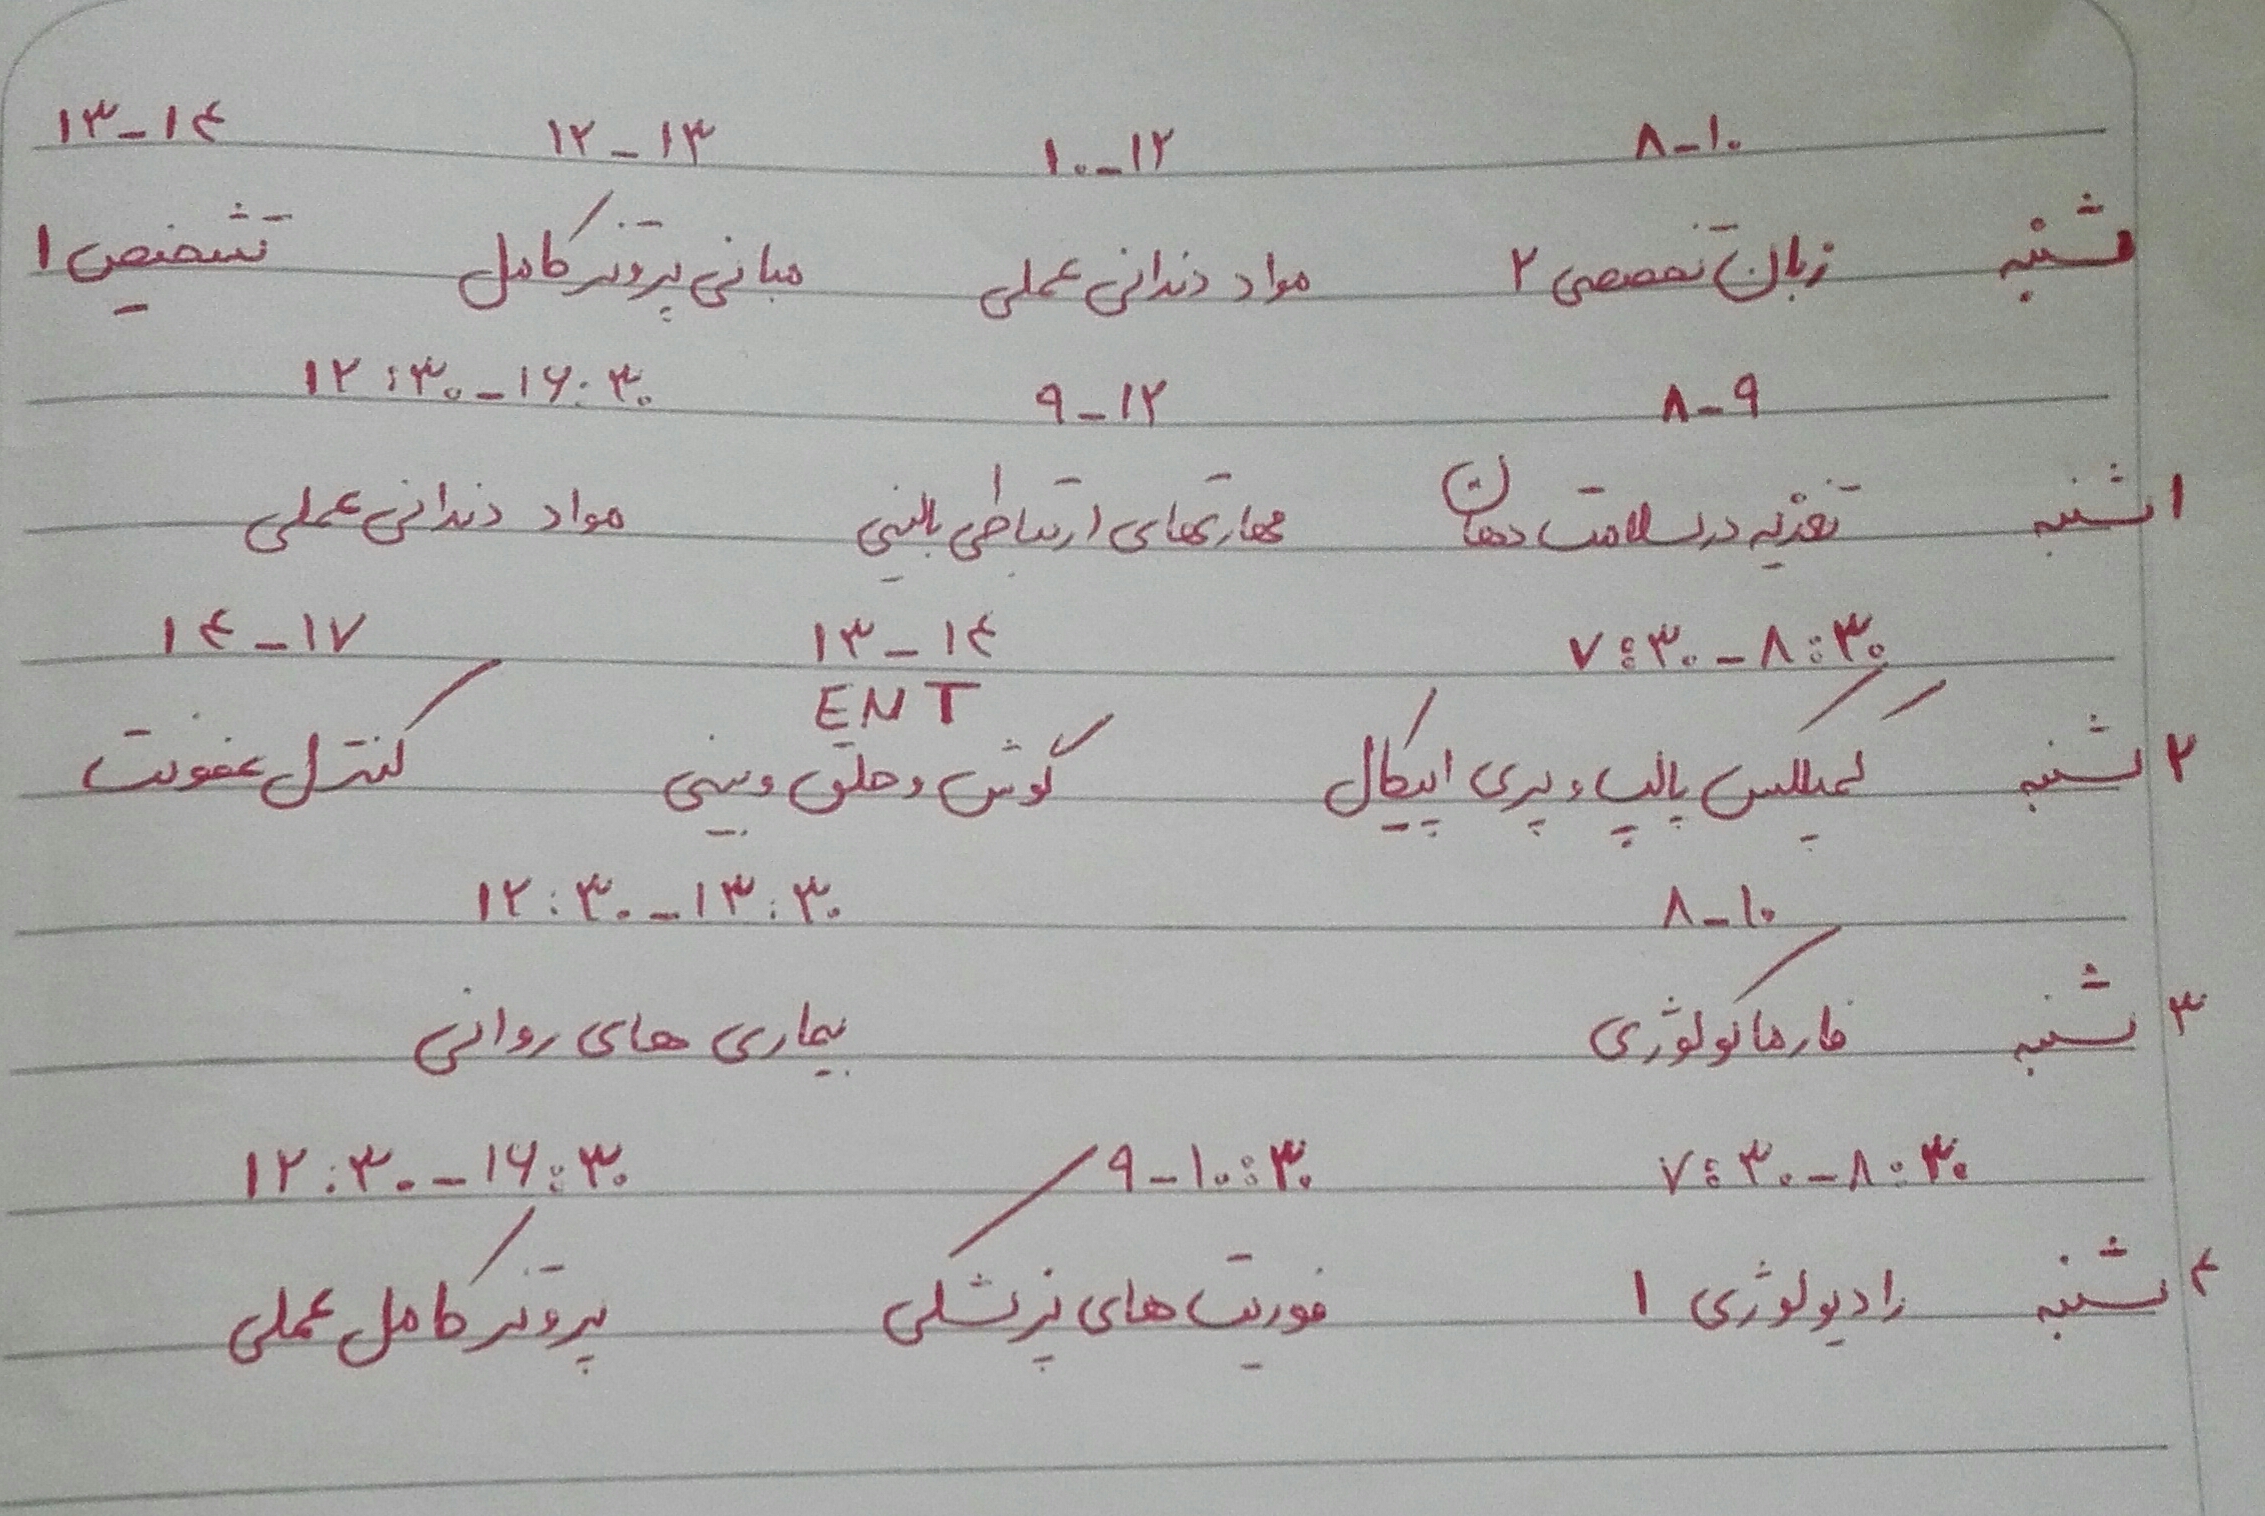 ۸-۱۰ ۱۰-۱۲ ۱۲-۱۳ ۱۳-۱۴
شنبه زبان تخصصی ۲ مواد دندانی عملی مبانی پروتز کامل تشخیص ۱
۸-۹ ۹-۱۲ ۱۲:۳۰-۱۶:۳۰
۱ شنبه تغذیه در سلامت دهان مهارتهای ارتباطی بالینی مواد دندانی عملی
۷:۳۰-۸:۳۰ ۱۳-۱۴ ۱۴-۱۷
ENT
۲ شنبه کمپلکس پالپ و پری اپیکال گوش و حلق و بینی کنترل عفونت
۸-۱۰ ۱۲:۳۰-۱۳:۳۰
۳ شنبه فارماکولوژی بیماری های روانی
۷:۳۰-۸:۳۰ ۹-۱۰:۳۰ ۱۲:۳۰-۱۶:۳۰
۴ شنبه رادیولوژی ۱ فوریت های پزشکی پروتز کامل عملی